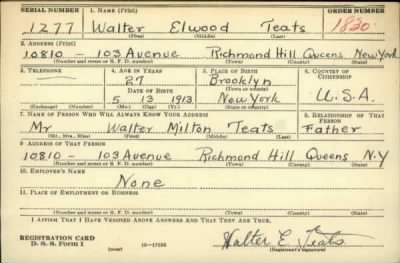 SERIAL NUMBER 1. NAME (Print) ORDER NUMBER
1277 Walter Elwood Teats 1830
(First) (Middle) (Last)
2. ADDRESS (Print)
10810 - 103 Avenue Richmond Hill Queens New York
(Number and street or R. F. D. number) (Town) (County) (State)
3. TELEPHONE 4. AGE IN YEARS 5. PLACE OF BIRTH 6. COUNTRY OF CITIZENSHIP
27 Brooklyn
(Town or county)
DATE OF BIRTH
5 13 1913 New York U.S.A.
(Exchange) (Number) (Mo.) (Day) (Yr.) (State or country)
7. NAME OF PERSON WHO WILL ALWAYS KNOW YOUR ADDRESS 8. RELATIONSHIP OF THAT PERSON
Mr Walter Milton Teats Father
(Mr., Mrs., Miss) (First) (Middle) (Last)
9. ADDRESS OF THAT PERSON
10810 - 103 Avenue Richmond Hill Queens N.Y
(Number and street or R. F. D. number) (Town) (County) (State)
10. EMPLOYER'S NAME
None
11. PLACE OF EMPLOYMENT OR BUSINESS
(Number and street or R. F. D. number) (Town) (County) (State)
I AFFIRM THAT I HAVE VERIFIED ABOVE ANSWERS AND THAT THEY ARE TRUE.
REGISTRATION CARD
D. S. S. Form 1 (over) Walter E. Teats
(Registrant's signature)